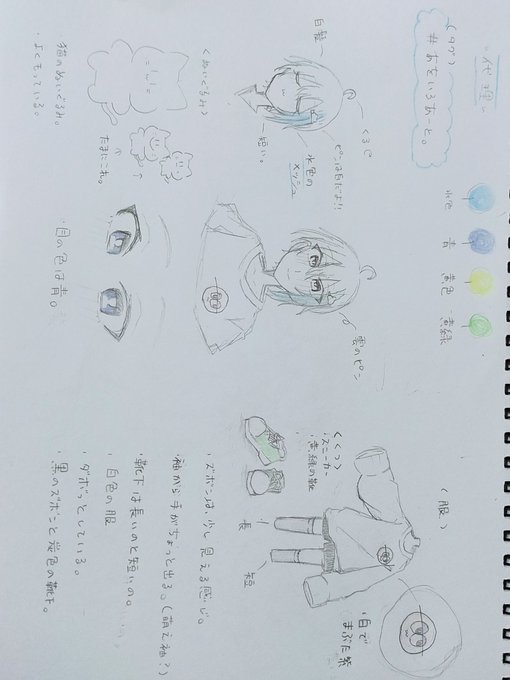 〝代理〟
(タグ)
#あをいろあーと。
水色
青
黄色
黄緑
白髪
ピンは白だよ!!
水色の
メッシュ
短い。
雲のピン
(服)
白で
まぶた紫
長
短
(くつ)
・スニーカー
・黄緑の靴
(ぬいぐるみ)
たまにこれ。
・猫のぬいぐるみ。
・よくもっている。
・目の色は青。
・ズボンは、少し見える感じ。
袖から手がちょっと出る。(萌え袖?)
・靴下は長いのと短いの。
・白色の服
・ダボっとしている。
・黒のズボンと炭色の靴下。